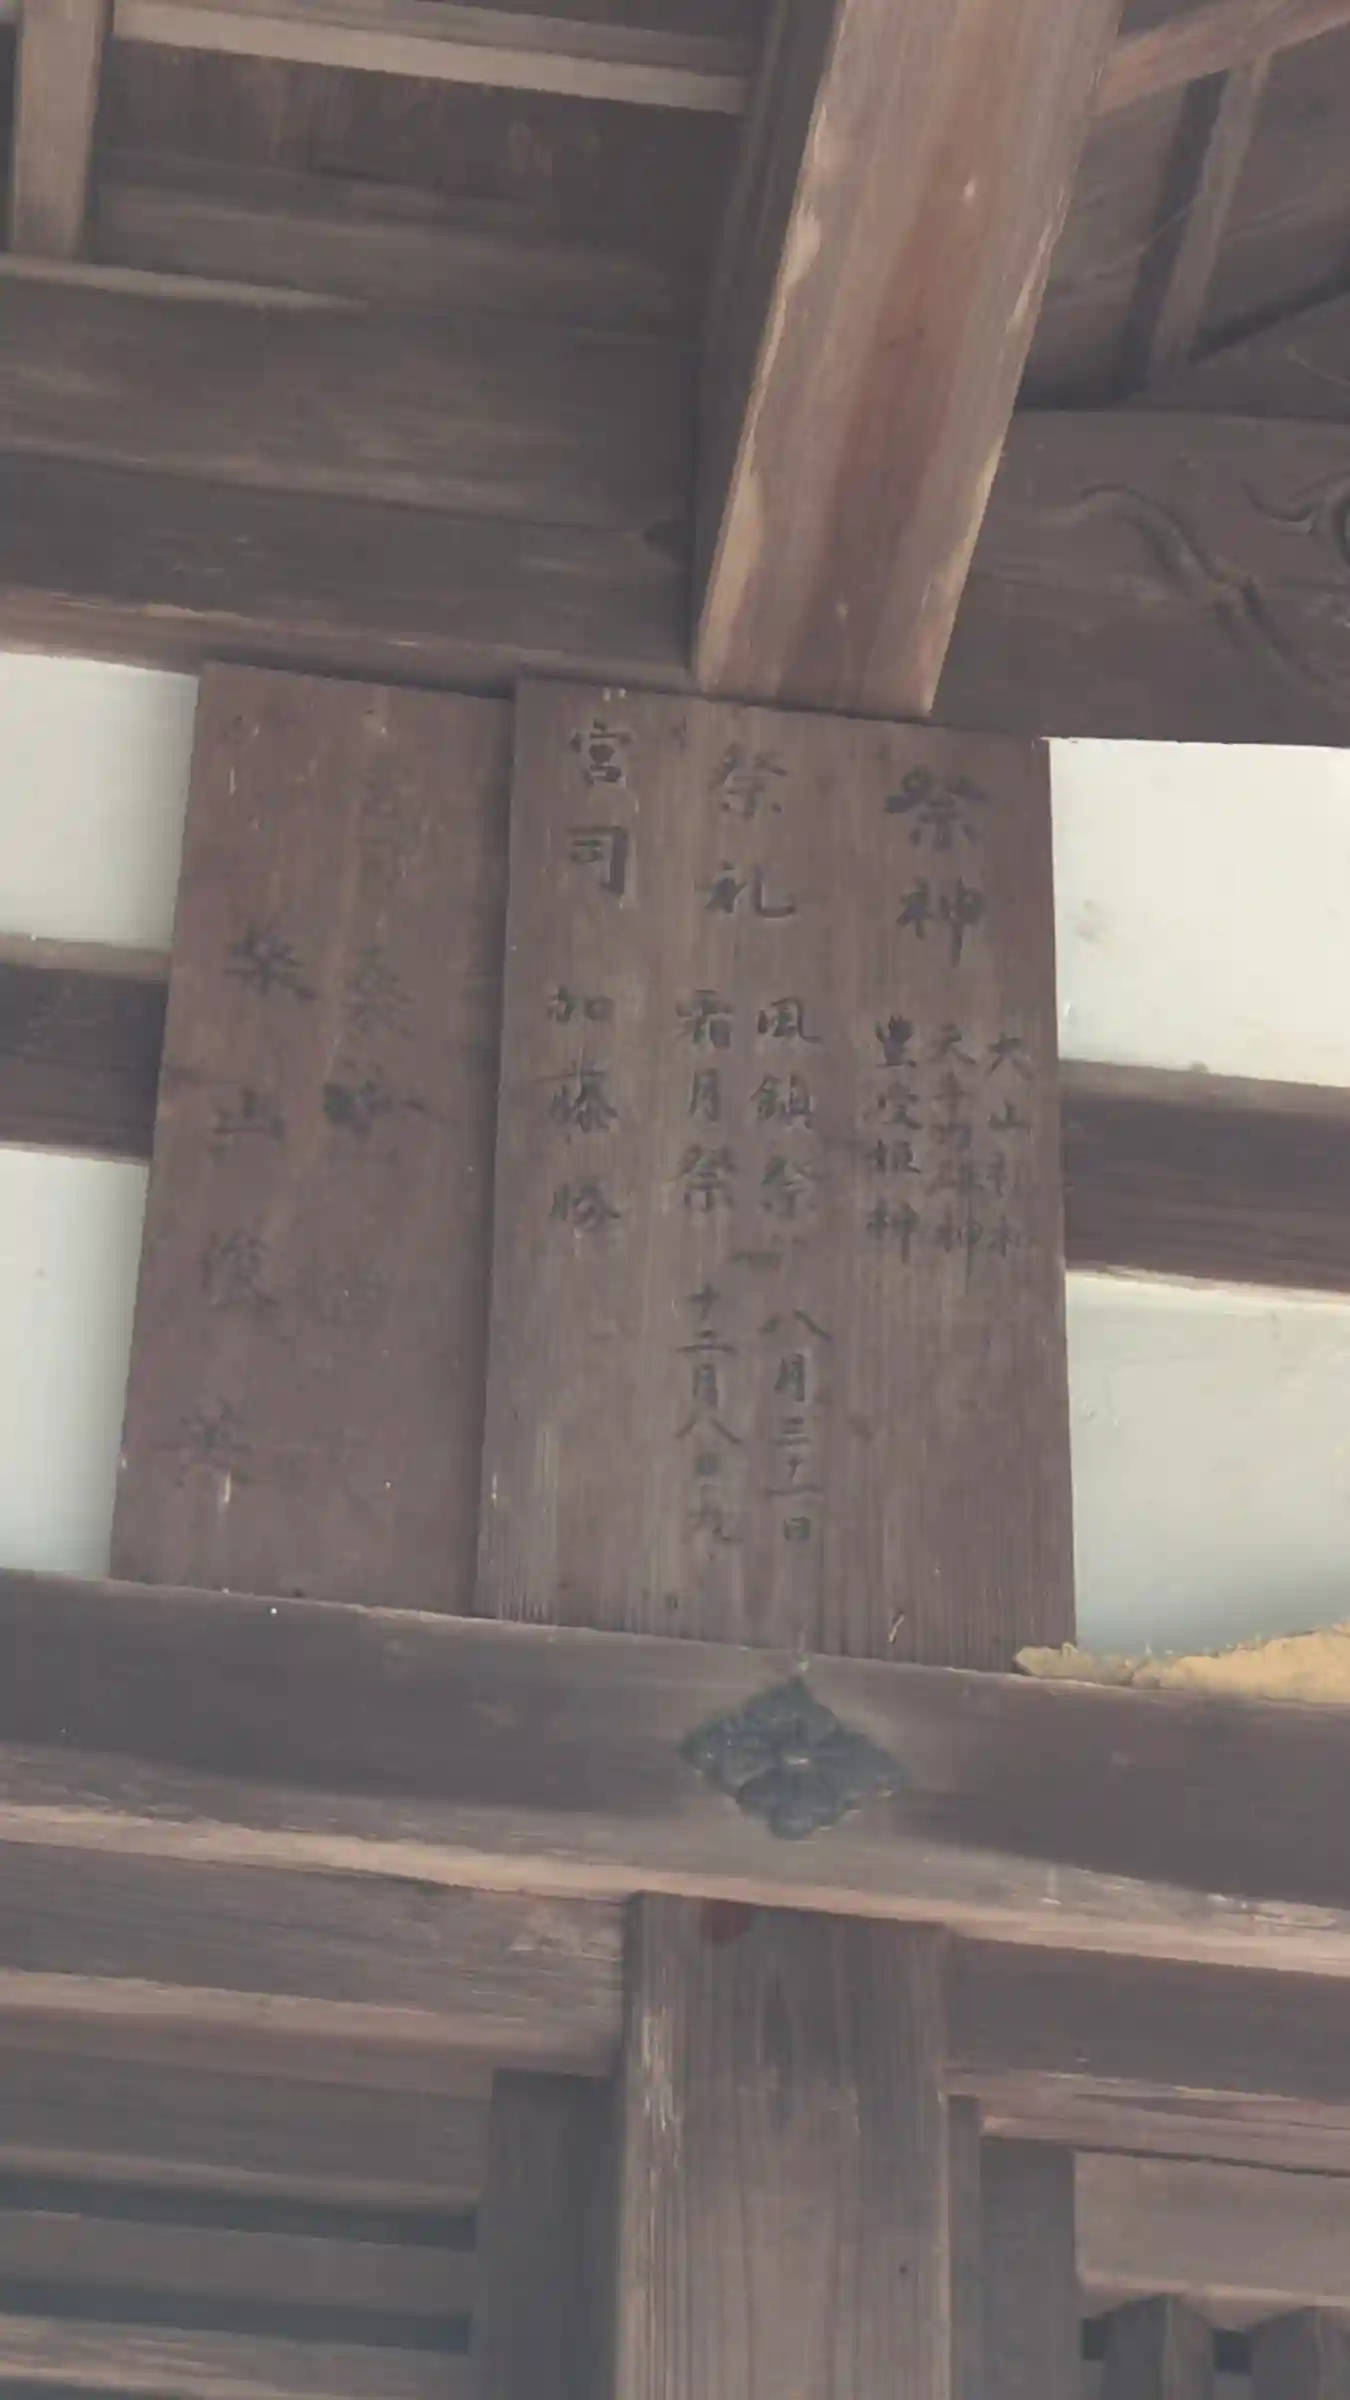 祭神
大山祇神
天手力雄神
豊受姫神
祭礼
風鎮祭 八月三十一日
霜月祭 十二月八日
宮司 加藤勝
柴山俊英